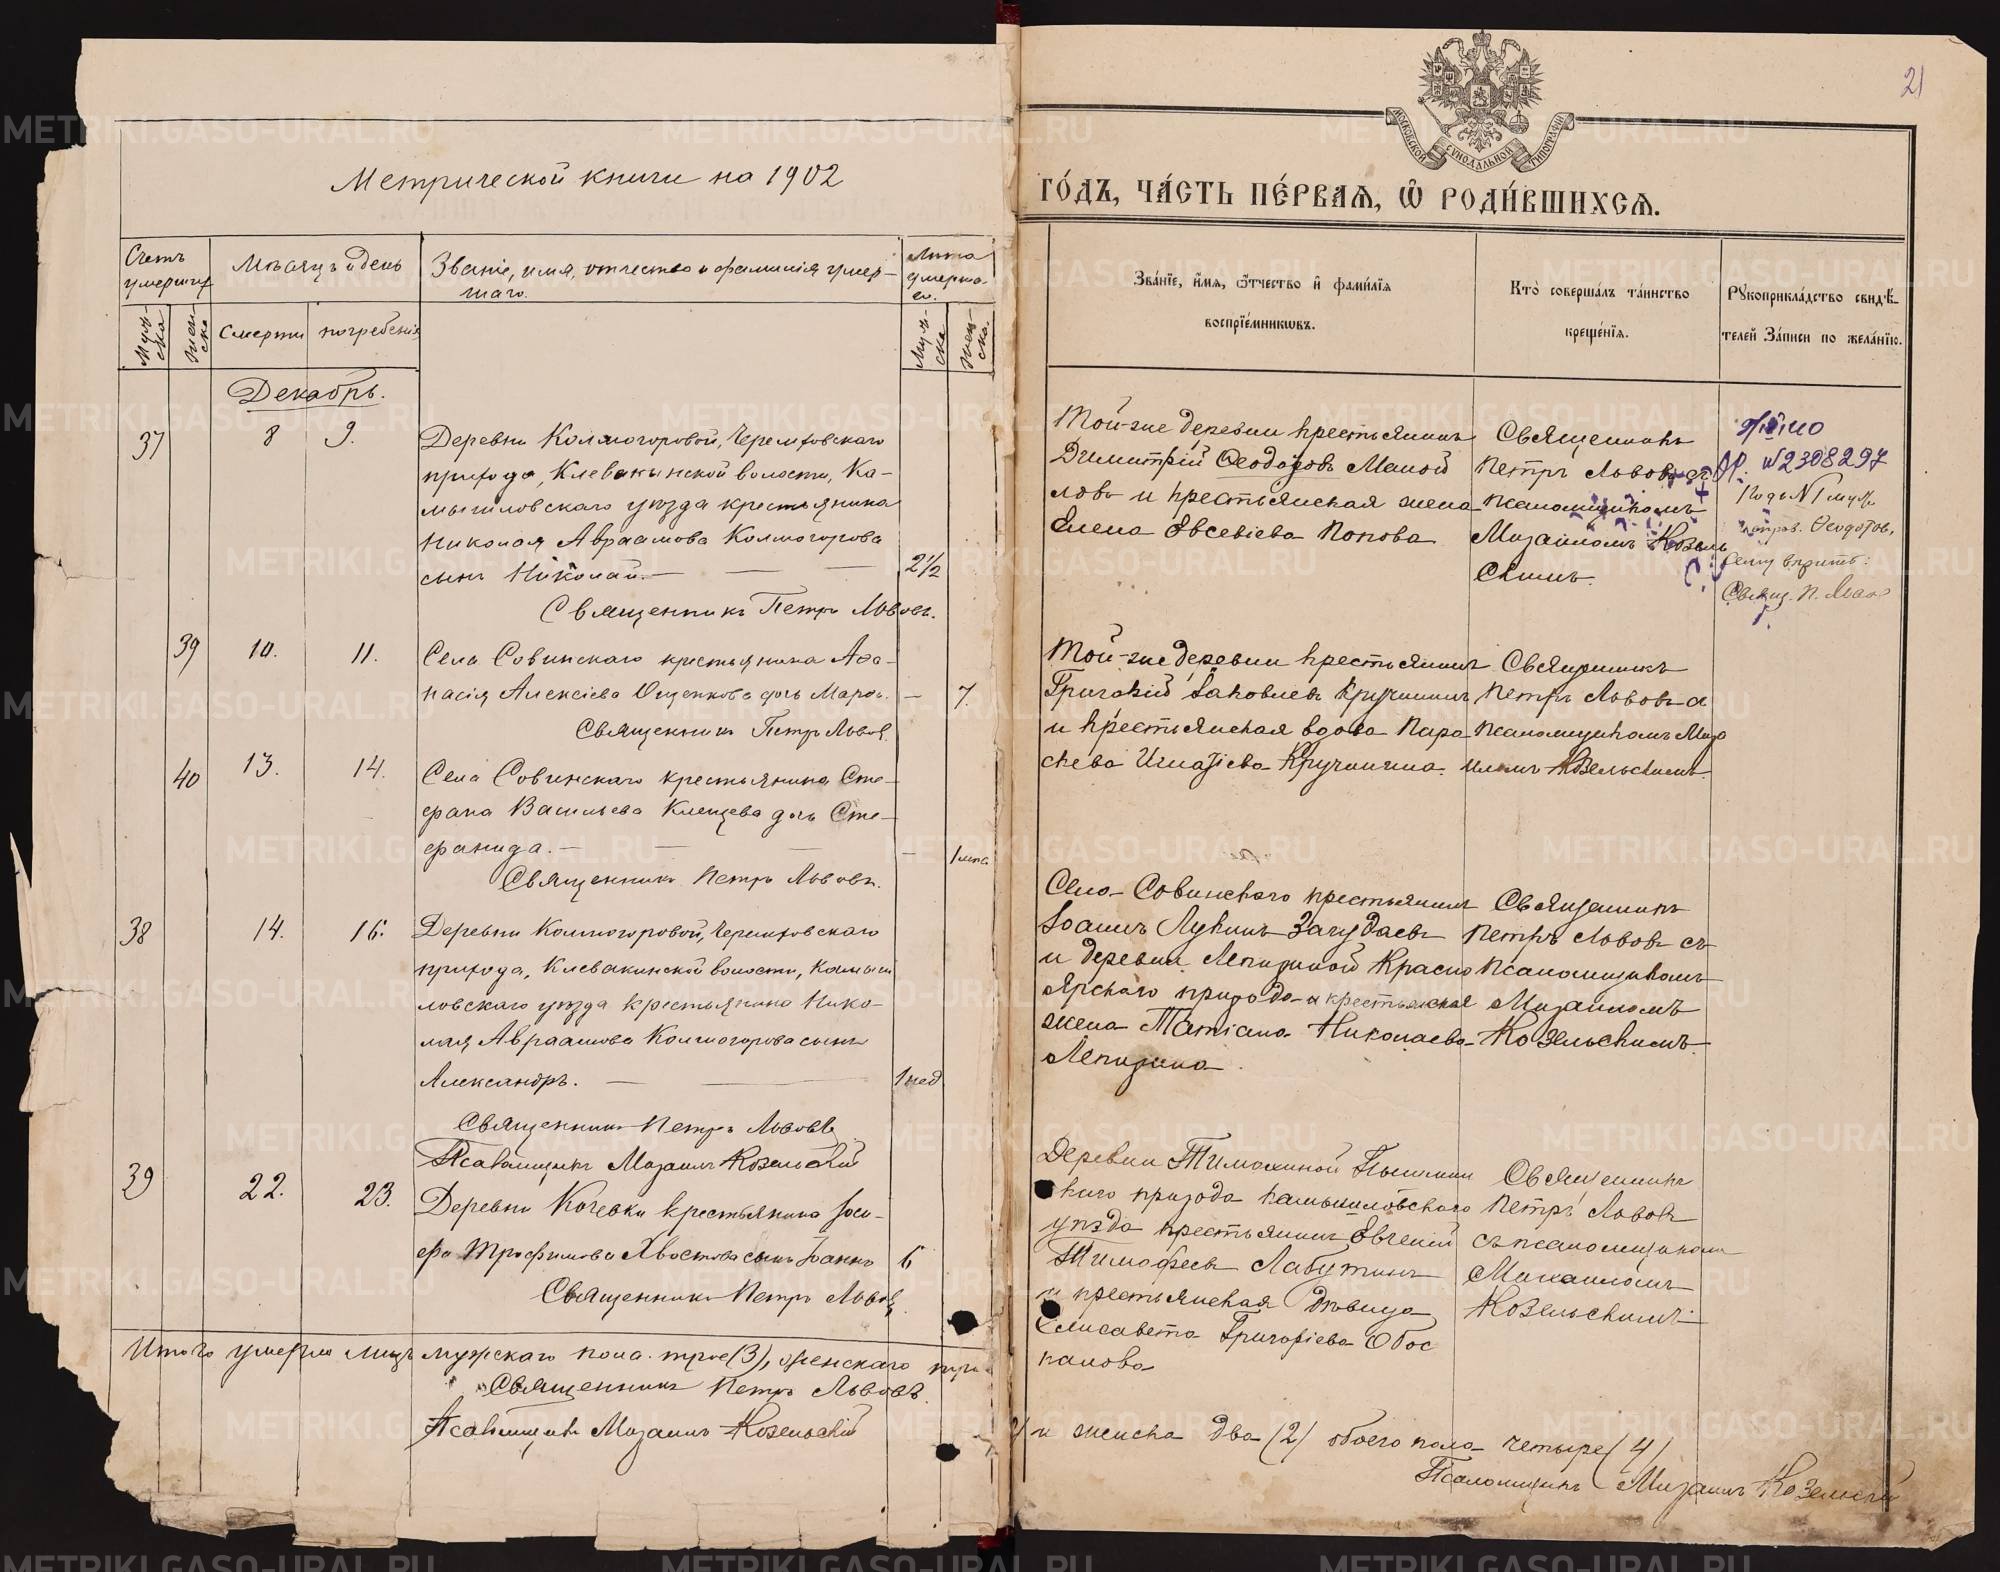 Метрической книги на 1902
Счетъ умершихъ
Мѣсяцъ и день
Званіе, имя, отчество и фамилія умер-
шаго.
Лѣта умерша-
го.
Муж-
ска
Жен-
ска
Смерти
погребенія
Муж-
ска
Жен-
ска.
Декабрь.
37 8 9. Деревни Колмогоровой, Черемховскаго
прихода, Клевакынской волости, Ка-
мышловскаго уѣзда крестьянина
Николая Авраамова Колмогорова
сынъ Николай. — — — 2½
Священникъ Петръ Львовъ.
39 10. 11. Села Совинскаго крестьянина Афа-
насія Алексіева Ощепкова дочь Марѳа. — 7.
Священникъ Петръ Львов
40 13. 14. Села Совинскаго крестьянина Сте-
фана Васильева Клещева дочь Сте-
фанида. — — — — 1 мѣс.
Священникъ Петръ Львовъ.
38 14. 16. Деревни Колмогоровой, Черемховскаго
прихода, Клевакинской волости, Камыш
ловскаго уѣзда крестьянина Нико-
лая Авраамова Колмогорова сынъ
Александръ. — — 1 нед
Священникъ Петръ Львовъ
Псаломщикъ Михаилъ Козельскій
39 22. 23. Деревни Кочевки крестьянина Іоси-
фа Трофимова Хвостова сынъ Іоаннъ 6
Священникъ Петръ Львов
Итого умерло лицъ мужскаго пола трое (3), женскаго
Священникъ Петръ Львовъ.
Псаломщикъ Михаилъ Козельскій
МОСКОВСКОЙ СѴНОДАЛЬНОЙ ТИПОГРАФІИ
21
ГО́ДЪ, ЧА́СТЬ ПЕ́РВАѦ, Ѽ РОДИ́ВШИХСѦ.
Зва́нїе, и҆́мя, ѻ҆́тчество и҆ фами́лїя
воспрїе́мникѡвъ.
Кто̀ соверша́лъ та́инство
креще́нїя.
Рꙋкоприкла́дство свидѣ́-
телей за́писи по жела́нїю.
Той-же деревни крестьянинъ
Димитрій Ѳеодоровъ Маной
ловъ и крестьянская жена
Елена Евсевіева Попова
Священникъ
Петръ Львовъ съ
псаломщикомъ
Михаиломъ Козель
скимъ.
№ 2308297
Подъ № 1 муж.
Ѳеодотов,
вѣрить:
Свящ. П. Льво
Той-же деревни крестьянинъ
Григорій Іаковлевъ Кручининъ
и крестьянская вдова Пара
скева Игнатіева Кручинина.
Священникъ
Петръ Львовъ съ
псаломщикомъ Миха
иломъ Козельскимъ.
Села Совинскаго крестьянинъ
Іоаннъ Лукинъ Загудаевъ
и деревни Лепихиной Красно
ярскаго прихода и крестьянская
жена Татіана Николаева
Лепихина.
Священникъ
Петръ Львовъ съ
псаломщикомъ
Михаиломъ
Козельскимъ.
Деревни Тимохиной Пышмин
скаго прихода Камышловскаго
уѣзда крестьянинъ Евгеній
Тимофеевъ Лабутинъ
и крестьянская дѣвица
Елисавета Григоріева Обос
калова
Священникъ
Петръ Львовъ
съ псаломщикомъ
Михаиломъ
Козельскимъ.
и женска два (2) обоего пола четыре (4)
Псаломщикъ Михаилъ Козельскій
METRIKI.GASO-URAL.RU